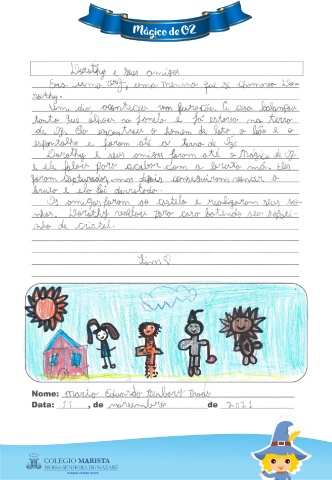 Mágico de OZ
Dorothy e seus amigos
Era uma vez, uma menina que se chamava Do-
rothy.
Um dia, aconteceu um furacão. A casa balançou
tanto que olhou na janela e já estava na terra
de Oz. Ela encontrou o homem de lata o leão e o
espantalho e foram até a terra de Oz.
Dorothy e seus amigos foram até o Mágico de Oz
e ele falou para acabar com a bruxa má. Eles
foram capturados, mas depois conseguiram vencer a
bruxa e ela foi derretida.
Os amigos foram ao castelo e realizaram seus so-
nhos. Dorothy voltou para casa batendo seu sapati-
nho de cristal.
Fim
Nome: Mario Eduardo
Data: 11 , de novembro de 2021
COLÉGIO MARISTA
NOSSA SENHORA DE NAZARÉ